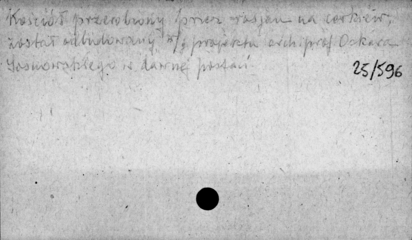 Kościół przerobiony przez rosjan na cerkiew,
został odbudowany w/g projektu arch. prof. Oskara
Sosnowskiego w dawnej postaci.
25/596